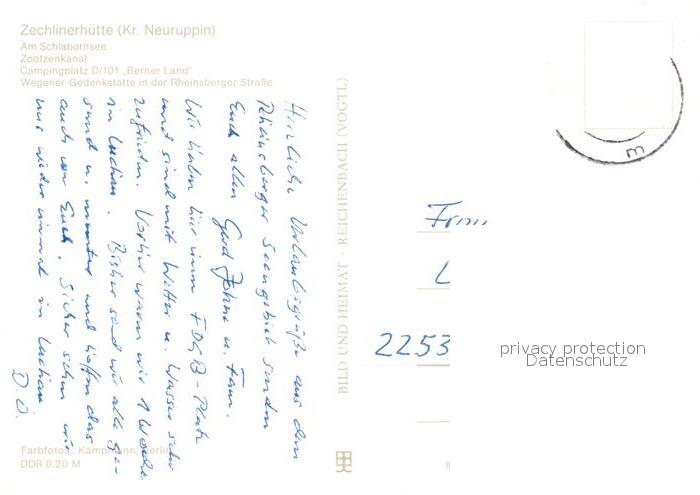 Zechlinerhütte (Kr. Neuruppin)
Am Schlabornsee
Zootzenkanal
Campingplatz D/101 „Berner Land"
Wegener-Gedenkstätte in der Rheinsberger Straße
Herzliche Urlaubsgrüße aus dem
Rheinsberger Seengebiet senden
Euch allen Gerd Johne u. Fam.
Wir haben hier einen FDGB-Platz
und sind mit Wetter u. Wasser sehr
zufrieden. Vorher waren wir 1 Woche
in Luckau. Bisher sind wir alle ge-
sund u. munter und hoffen das
auch von Euch. Sicher sehen wir
uns wieder einmal in Luckau
D. O.
Farbfotos: Kampmann, Berlin
DDR 0,20 M
BILD UND HEIMAT · REICHENBACH (VOGTL)
E
Frau
L
2253
privacy protection
Datenschutz